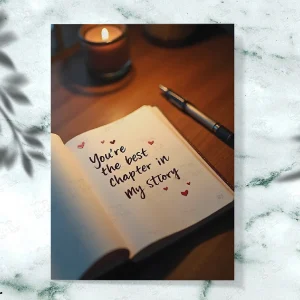 You're
the best
chapter in
my story